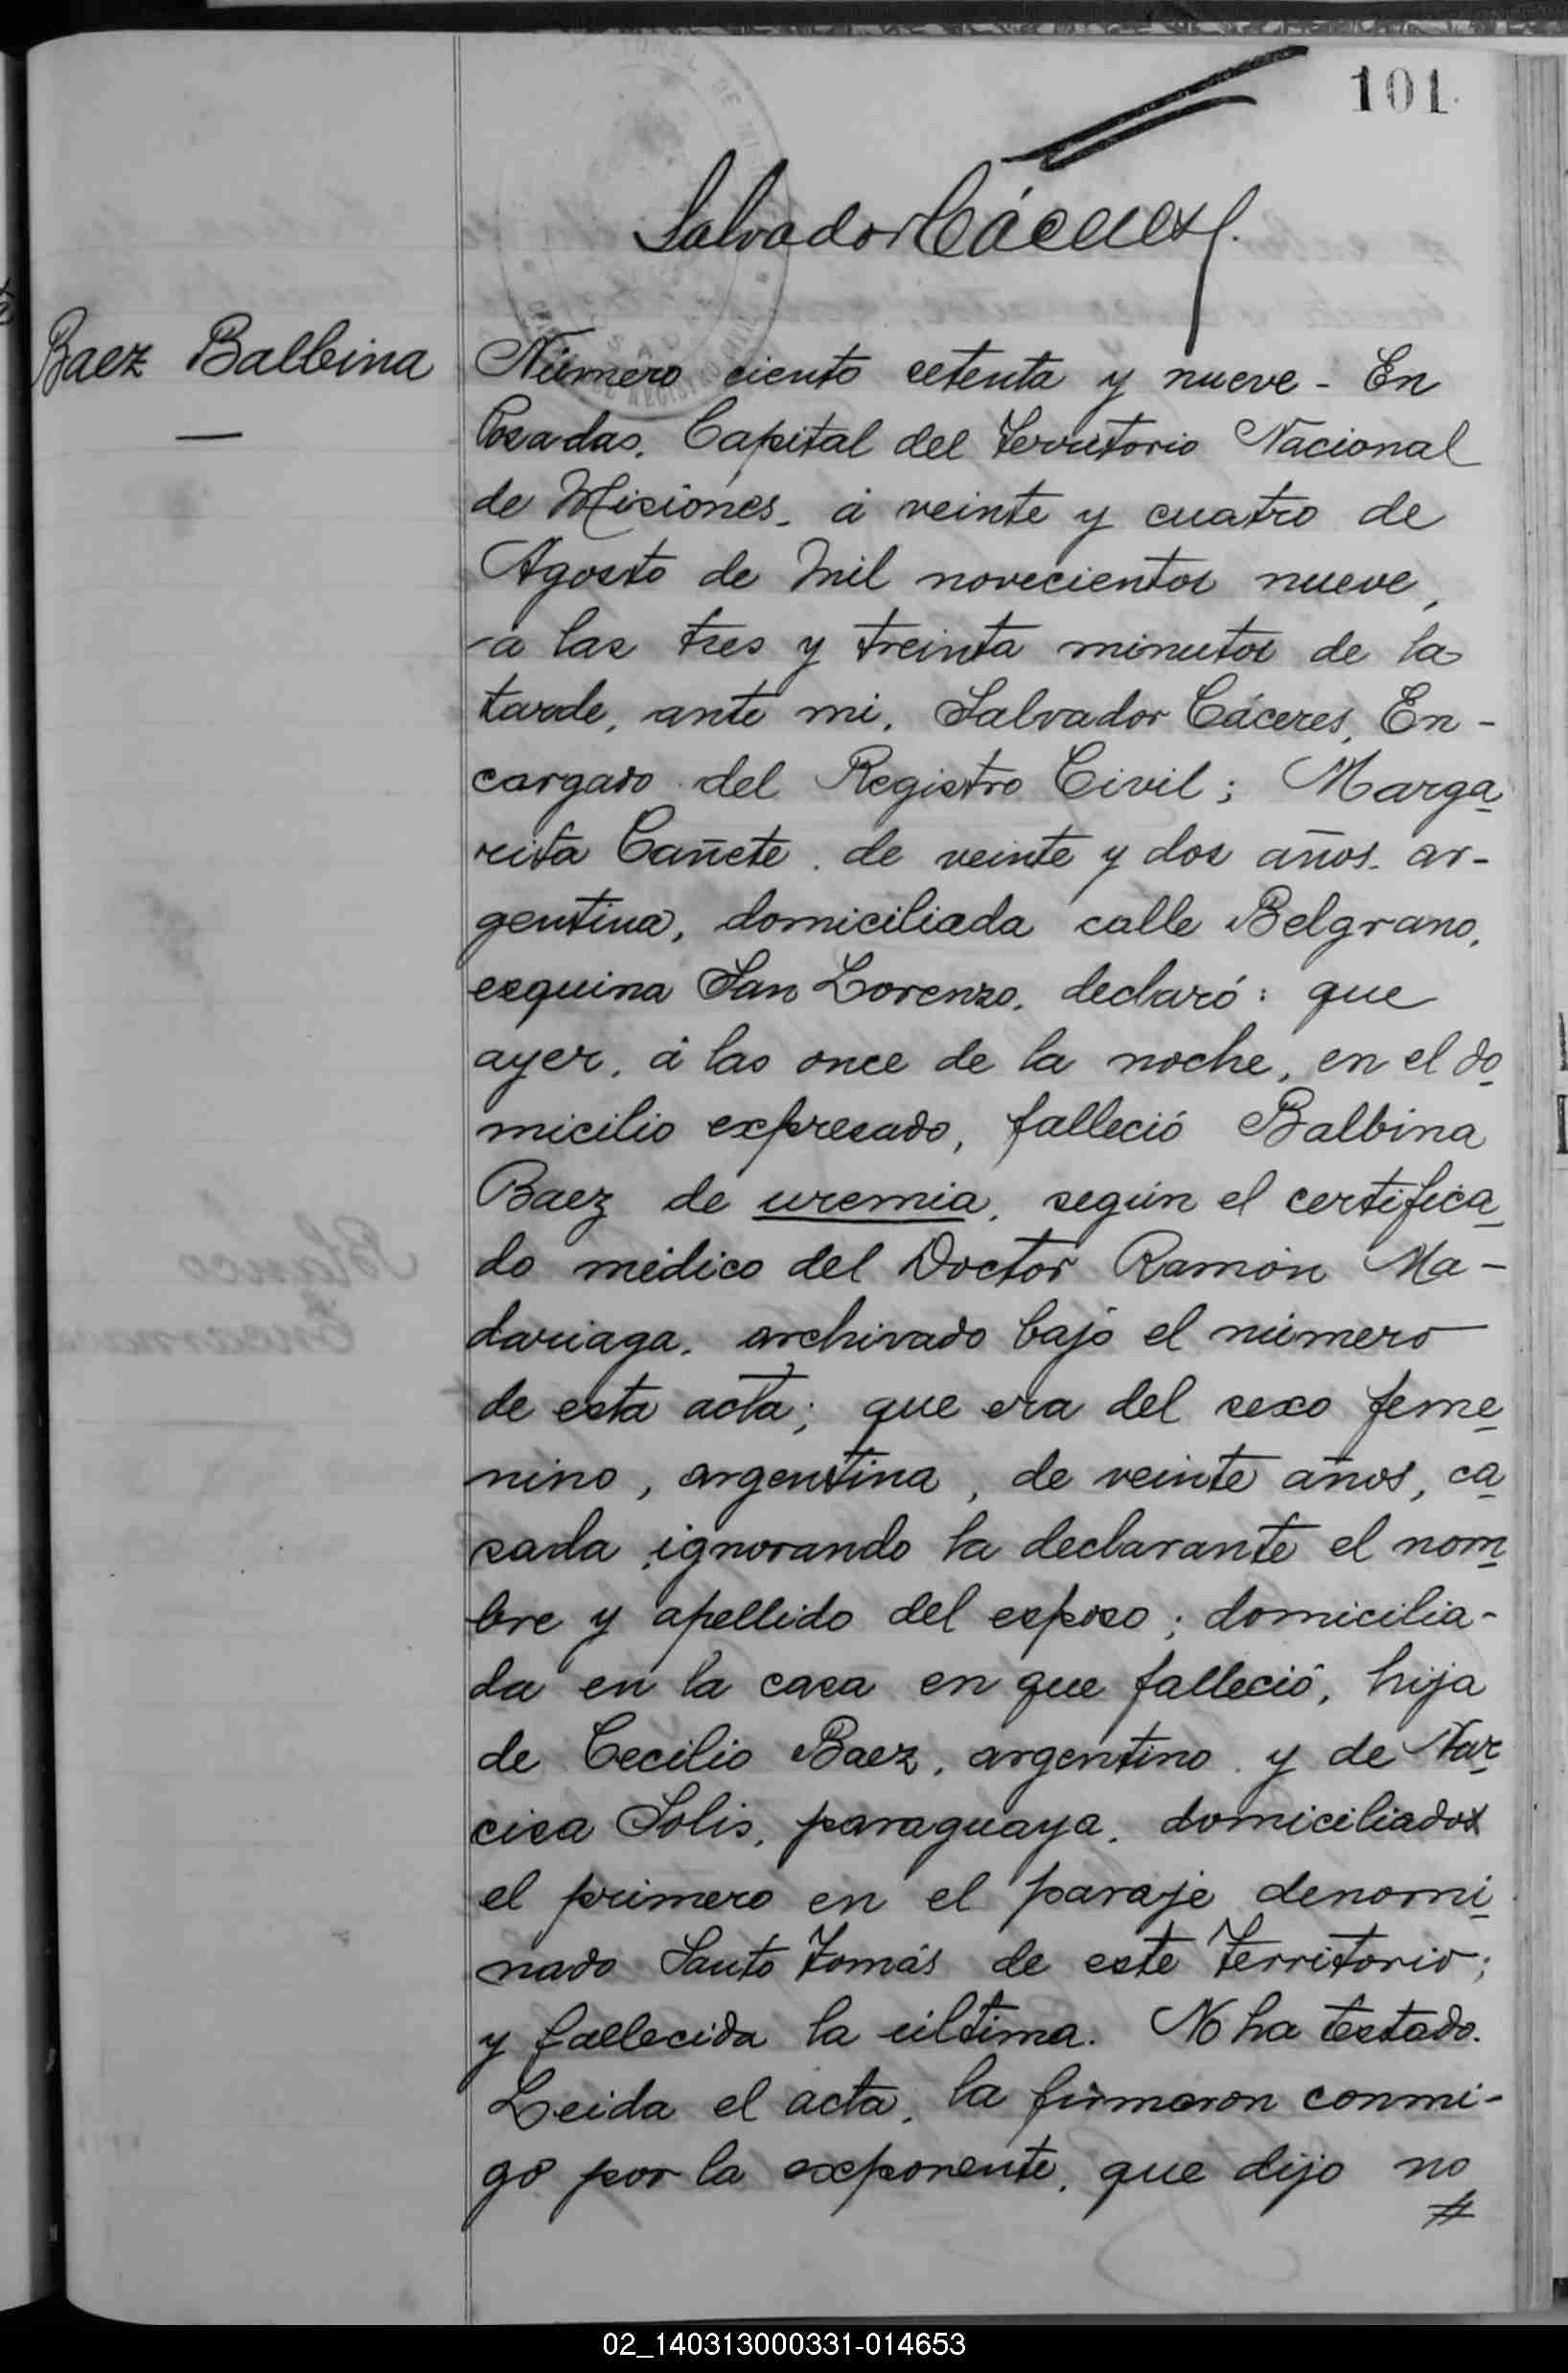 101
Salvador Cáceres
Baez Balbina
Número ciento setenta y nueve - En
Posadas, Capital del Territorio Nacional
de Misiones, á veinte y cuatro de
Agosto de mil novecientos nueve,
a las tres y treinta minutos de la
tarde, ante mi, Salvador Cáceres, En-
cargado del Registro Civil; Marga
rita Cañete, de veinte y dos años, ar-
gentina, domiciliada calle Belgrano,
esquina San Lorenzo, declaró: que
ayer, á las once de la noche, en el do
micilio expresado, falleció Balbina
Baez de uremia, según el certifica
do médico del Doctor Ramón Ma-
dariaga, archivado bajo el número
de esta acta; que era del sexo feme
nino, argentina, de veinte años, ca
sada, ignorando la declarante el nom
bre y apellido del esposo; domicilia-
da en la casa en que falleció, hija
de Cecilio Baez, argentino y de Nar
cisa Solis, paraguaya, domiciliados
el primero en el paraje denomi
nado Santo Tomás de este Territorio;
y fallecida la última. No ha testado.
Leida el acta, la firmaron conmi-
go por la exponente, que dijo no
02_140313000331-014653